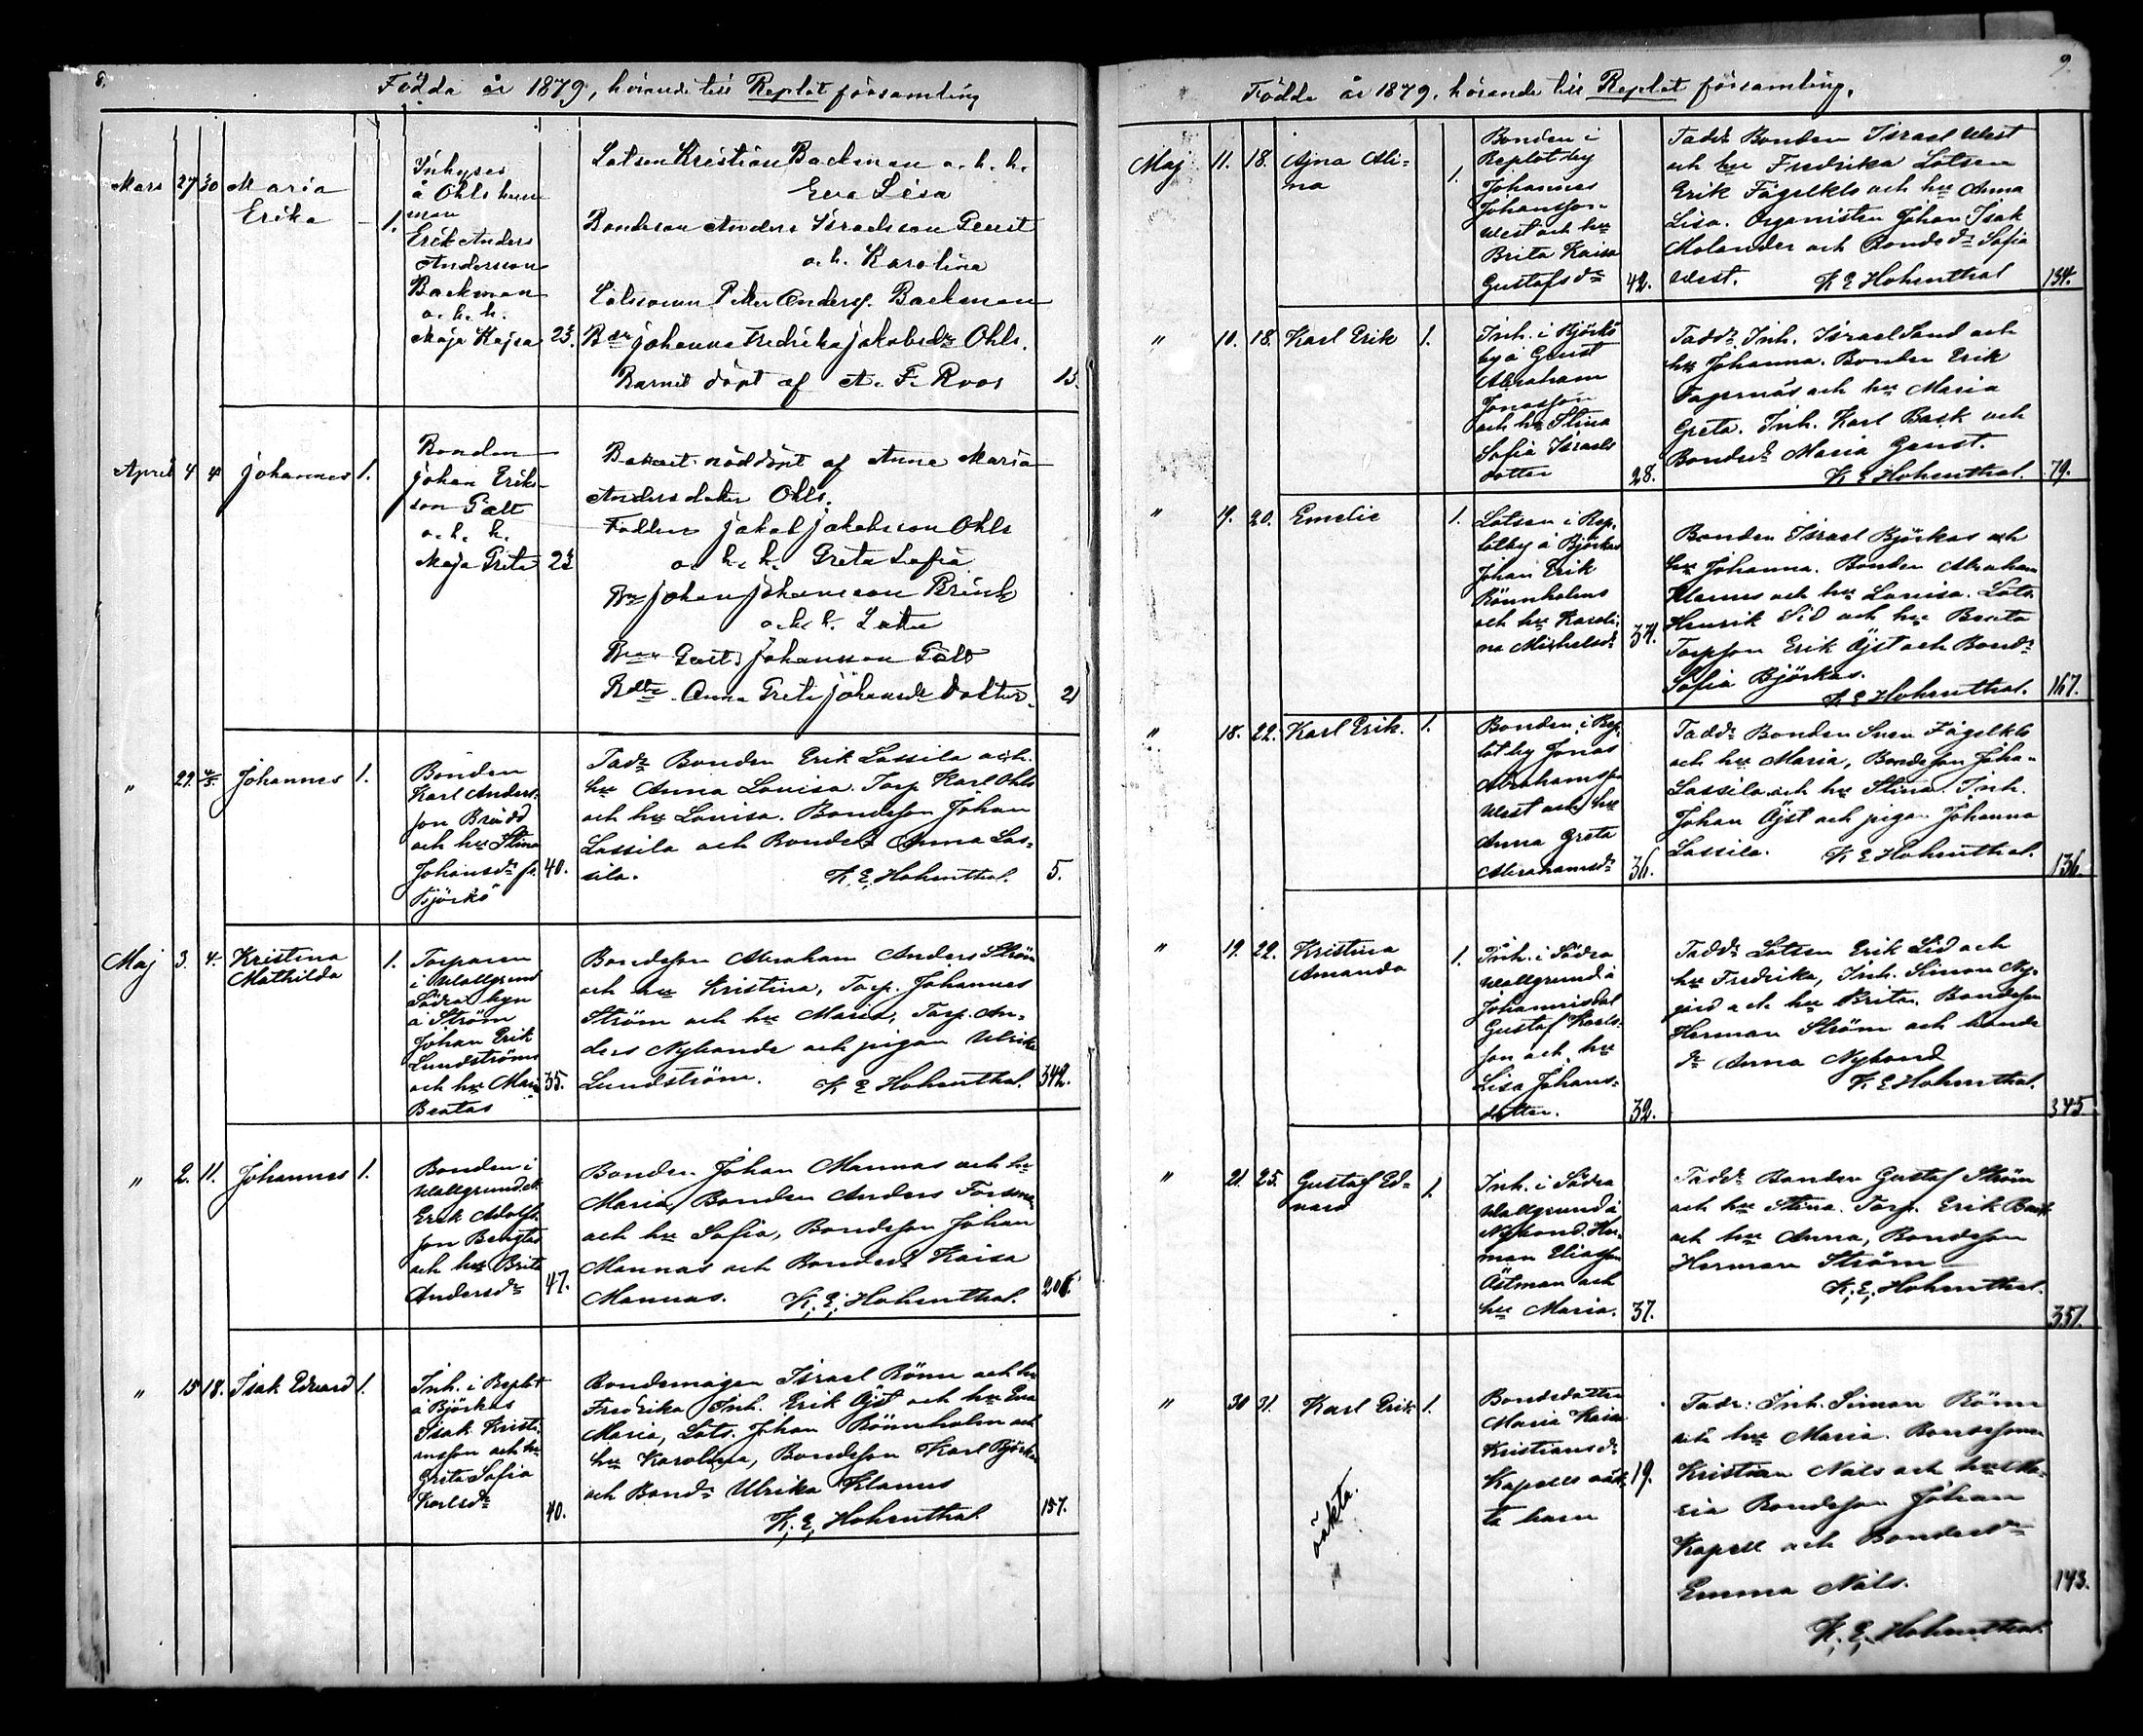 8.
Födda år 1879, hörande till Replot församling
Mars 27 30 Maria Erika 1.
Inhyses
å Ohls
Erik Anders
Andersson
Backman
o. h. h.
Maja Kajsa 23.
Lotsen Kristian Backman o. h. h.
Eva Lisa
Bondeson Anders Israelsson Geust
o. h. Karolina
Peter Anderss. Backman
Johanna Fredrika Jakobsdr Ohls.
Barnet döpt af A. F. Roos 15.
April 4 4 Johannes 1.
Bonden
Johan Eriks-
son Galt
o. h. h.
Maja Greta 23
Barnet nöddöpt af Anna Maria
Andersdoter Ohls.
Faddrar Jakob Jakobsson Ohls
o. h. h. Greta Sofia
Johan Johansson Brink
o. h. h.
Johansson Galt
Anna Greta Johansdotter 21
" 29. 4/5. Johannes 1.
Bonden
Karl Anders-
son Brådd
och hu Stina
Johansdr fr. 40.
Björkö
Fadr Bonden Erik Lassila och
hu Anna Lovisa. Torp. Karl Ohls
och hu Lovisa. Bondeson Johan
Lassila och Bondedr Anna Las-
sila. K. E. Hohenthal. 5.
Maj 3. 4. Kristina
Mathilda 1.
Torparen
i Wallgrund
Södra byn
å Ström
Johan Erik
Lundström
och hu Maria 35.
Beatas
Bondeson Abraham Anders Ström
och hu Kristina, Torp. Johannes
Ström och hu Maria, Torp. An-
ders Nybonde och pigan Ulrika
Lundström. K E Hohenthal. 342.
" 2. 11. Johannes 1.
Bonden i
Wallgrund
Erik Adolfs-
son Bengtas
och hu Brita
Andersdr 47.
Bonden Johan Mannas och hu
Maria, Bonden Anders Forsman
och hu Sofia, Bondeson Johan
Mannas och Bondedr Kaisa
Mannas. K. E. Hohenthal.
" 15 18. Isak Edvard 1.
Inh. i Replot
å Björkas
Isak Kristi-
ansson och hu
Greta Sofia
Karlsdr 40.
Bondemågen Israel Rönn och hu
Fredrika Inh. Erik Öjst och hu Eva
Maria, Lots. Johan Rönnholm och
hu Karolina, Bondeson Karl Björkas
och Bondr Ulrika Klanus
K. E. Hohenthal. 157.
9.
Födda år 1879, hörande till Replot församling.
Maj 11. 18. Ajna Ali-
na 1.
Bonden i
Replot by
Johannes
Johansson
West och hu
Brita Kaisa
Gustafsdr 42.
Faddr Bonden Israel West
och hu Fredrika Lotsen
Erik Fågelklo och hu Anna
Lisa. Organisten Johan Isak
Molander och Bondedr Sofia
West. K E Hohenthal 134.
" 10. 18. Karl Erik 1.
Inh. i Björkö
by å Geust
Abraham
Jonasson
och hu Stina
Sofia Israels
dotter 28.
Faddr Inh. Israel Sand och
hu Johanna. Bonden Erik
Fagernäs och hu Maria
Greta. Inh. Karl Bask och
Bondedr Maria Geust.
K E Hohenthal. 79.
" 19. 20. Emelie 1.
Lotsen i Rep-
lotby å Björkas
Johan Erik
Rönnholm
och hu Karoli-
na Michelsdr 37.
Bonden Israel Björkas och
hu Johanna. Bonden Abraham
Klanus och hu Lovisa. Lots.
Henrik Sid och hu Beata
Torpson Erik Öjst och Bondr
Sofia Björkas.
K E Hohenthal. 167.
" 18. 22. Karl Erik. 1.
Bonden i Rep-
lot by Jonas
Abrahamsson
West och hu
Anna Greta
Abrahamsdr 36.
Faddr Bonden Sven Fågelklo
och hu Maria, Bondeson Joha-
Lassila och hu Stina. Inh.
Johan Öjst och pigan Johanna
Lassila. K E Hohenthal. 136.
" 19. 22. Kristina
Amanda 1.
Inh. i Södra
Wallgrund å
Johannisdal
Gustaf Karls-
son och hu
Lisa Johans-
dotter. 32.
Faddr Lotsen Erik Sid och
hu Fredrika, Inh. Simon Ny-
gård och hu Brita. Bondeson
Herman Ström och bonde
dr Anna Nybond
K. E Hohenthal.
345
" 21. 25. Gustaf Ed-
vard 1.
Inh. i Södra
Wallgrund å
Nybond Her-
man Eliasson
Östman och
hu Maria. 37.
Faddr Bonden Gustaf Ström
och hu Stina. Torp. Erik Back
och hu Anna, Bondeson
Herman Ström
K. E. Hohenthal.
351.
" 30 31. Karl Erik 1.
oäkta.
Bondedotter
Maria Kaisa
Kristiansdr
Kapells oäk- 19.
ta barn
Fadr: Inh. Simon Rönn
och hu Maria. Bondesonen
Kristian Nåls och hu Ma-
ria Bondeson Johan
Kapell och Bondedr
Emma Nåls. 143.
K. E. Hohenthal.